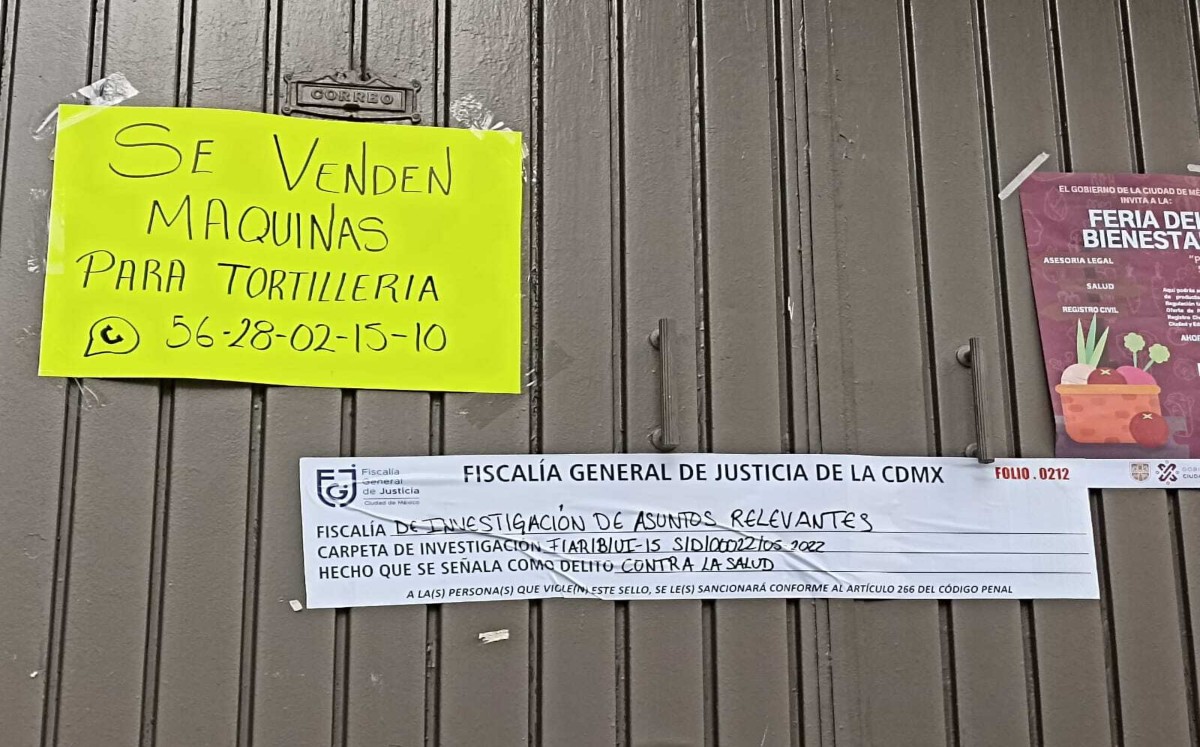 CORREO
SE VENDEN
MAQUINAS
PARA TORTILLERIA
56-28-02-15-10
EL GOBIERNO DE LA CIUDAD DE MÉ
INVITA A LA:
FERIA DEL
BIENESTA
ASESORIA LEGAL
SALUD
REGISTRO CIVIL
Aquí podrás a
de producto
Ciudad y E
AHO
FGJ
Fiscalía
General
de Justicia
Ciudad de México
FISCALÍA GENERAL DE JUSTICIA DE LA CDMX
FOLIO . 0212
FISCALÍA DE INVESTIGACIÓN DE ASUNTOS RELEVANTES
CARPETA DE INVESTIGACIÓN
HECHO QUE SE SEÑALA COMO DELITO CONTRA LA SALUD
A LA(S) PERSONA(S) QUE VIOLE(N) ESTE SELLO, SE LE(S) SANCIONARÁ CONFORME AL ARTÍCULO 266 DEL CÓDIGO PENAL